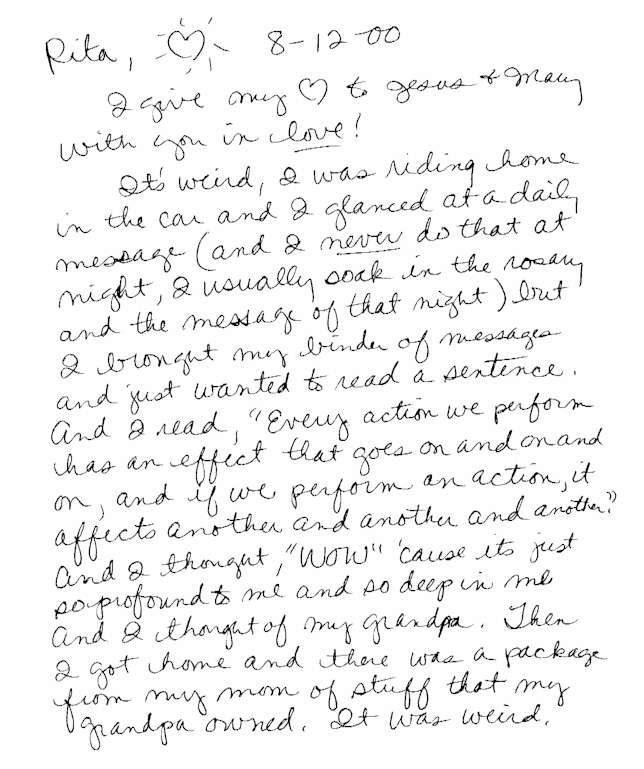 Rita, ♡ 8-12-00
I give my ♡ to Jesus & Mary
with you in love!
It's weird, I was riding home
in the car and I glanced at a daily
message (and I never do that at
night, I usually soak in the rosary
and the message of that night) but
I brought my binder of messages
and just wanted to read a sentence.
And I read, "Every action we perform
has an effect that goes on and on and
on, and if we perform an action, it
affects another and another and another."
And I thought, "WOW" 'cause its just
so profound to me and so deep in me
And I thought of my grandpa. Then
I got home and there was a package
from my mom of stuff that my
grandpa owned. It was weird.